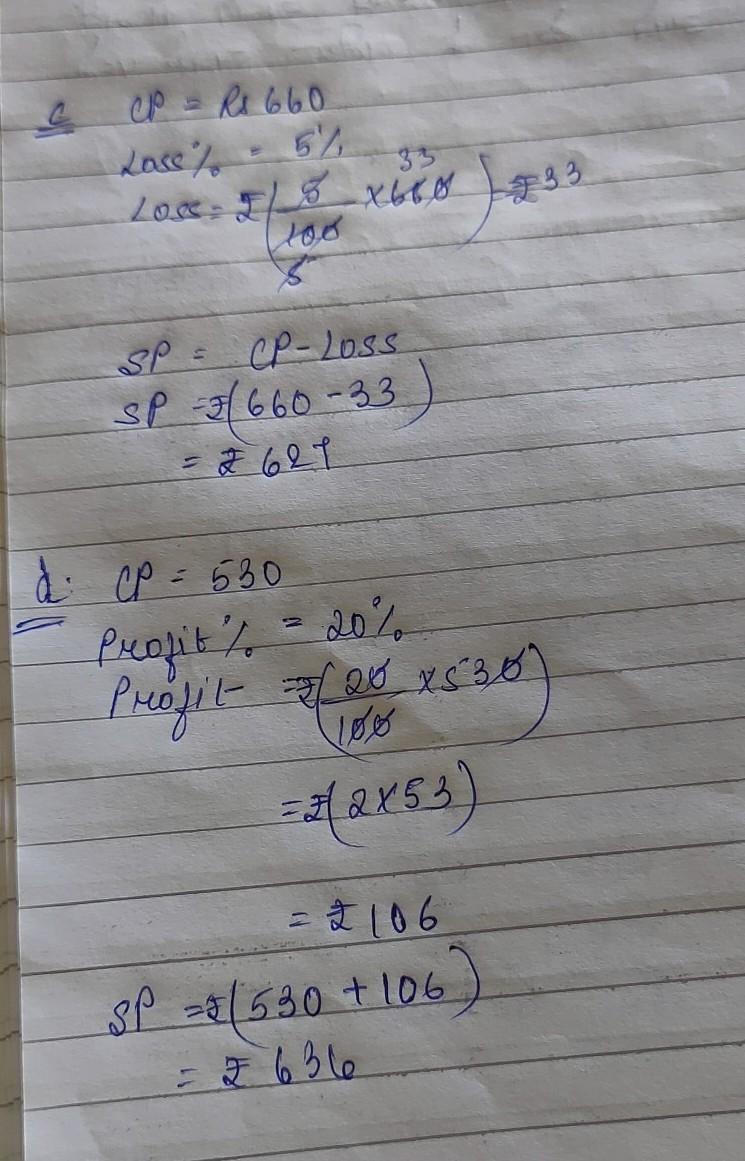 c CP = Rs 660
Loss% = 5%
33
Loss = ₹(5/100 × 660) = ₹33
5
SP = CP - Loss
SP = ₹(660 - 33)
= ₹ 627
d. CP = 530
Profit% = 20%
Profit = ₹(20/100 × 530)
= ₹(2×53)
= ₹106
SP = ₹(530 + 106)
= ₹ 636